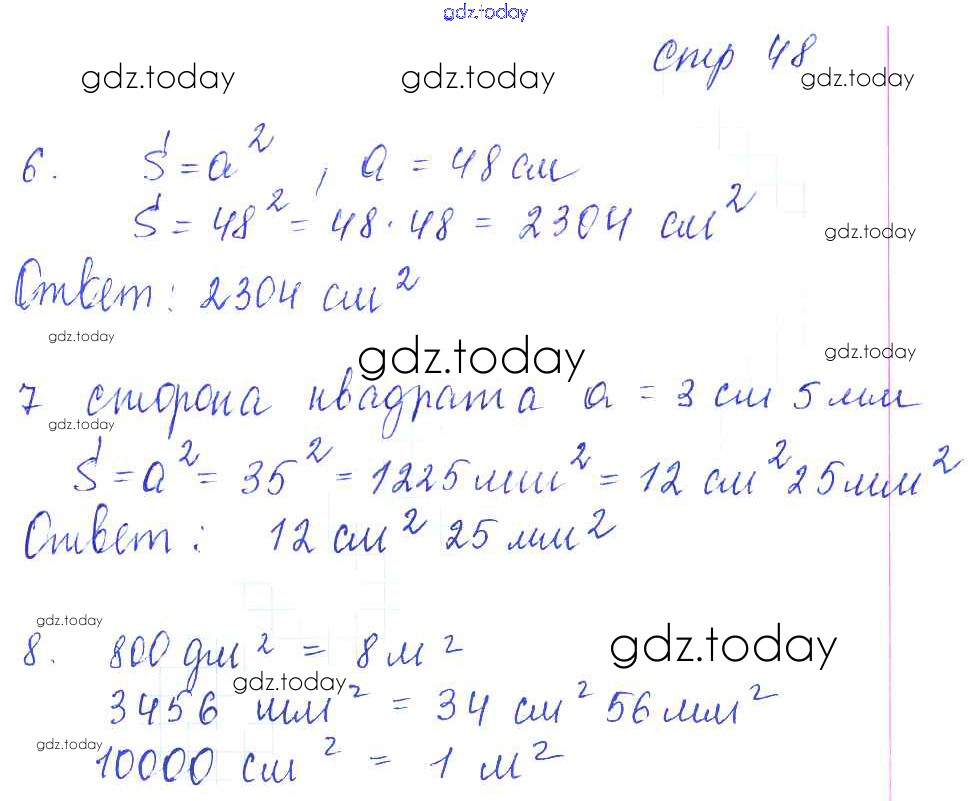 gdz.today
стр 48
gdz.today gdz.today gdz.today
6. S = a², a = 48 см
S = 48² = 48 · 48 = 2304 см²
gdz.today
Ответ: 2304 см²
gdz.today gdz.today gdz.today
7 сторона квадрата a = 3 см 5 мм
gdz.today
S = a² = 35² = 1225 мм² = 12 см² 25 мм²
Ответ: 12 см² 25 мм²
gdz.today gdz.today
8. 800 дм² = 8 м²
gdz.today
3456 мм² = 34 см² 56 мм²
gdz.today
10000 см² = 1 м²